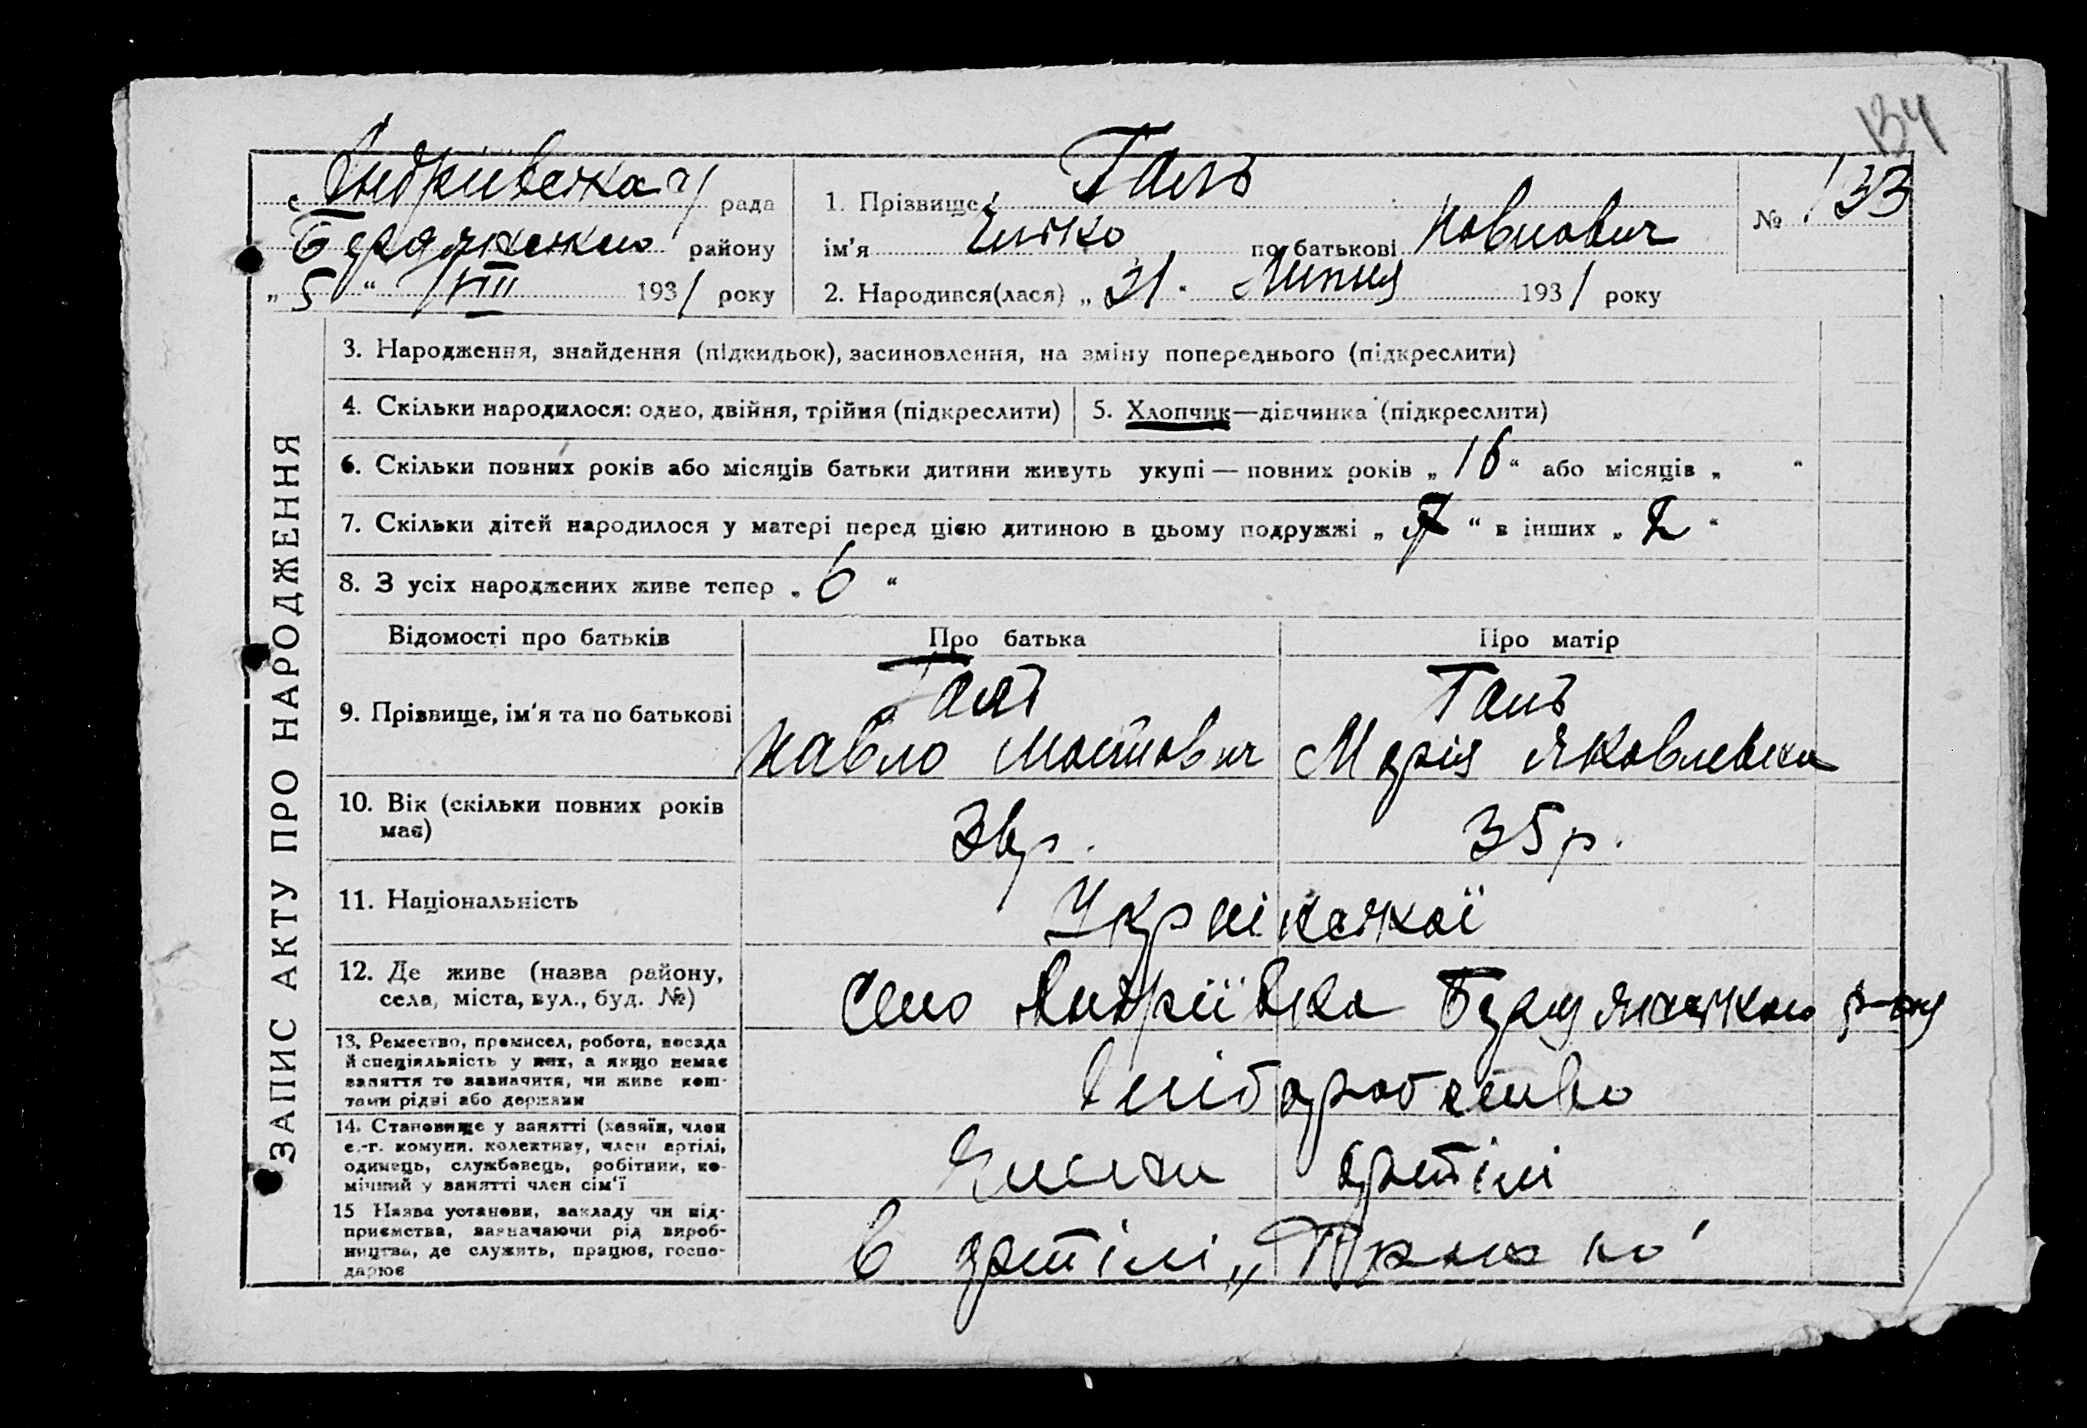 134
с. Андріївська рада
Бердянського району
„ 5 “ VIII 1931 року
1. Прізвище Галь
ім'я по батькові Павлович
2. Народився(лася) „ 31 “ Липня 1931 року
№ 133
ЗАПИС АКТУ ПРО НАРОДЖЕННЯ
3. Народження, знайдення (підкидьок), засиновлення, на зміну попереднього (підкреслити)
4. Скільки народилося: одно, двійня, трійня (підкреслити)
5. Хлопчик—дівчинка (підкреслити)
6. Скільки повних років або місяців батьки дитини живуть укупі — повних років „ 16 “ або місяців „ “
7. Скільки дітей народилося у матері перед цією дитиною в цьому подружжі „ 7 “ в інших „ 2 “
8. З усіх народжених живе тепер „ 6 “
Відомості про батьків Про батька Про матір
9. Прізвище, ім'я та по батькові
Галь
Павло
Галь
Марія Яковлевна
10. Вік (скільки повних років
має)
36 р. 35 р.
11. Національність Української
12. Де живе (назва району,
села, міста, вул., буд. №)
село Андріївка Бердянського р-ну
13. Ремество, промисел, робота, посада
й спеціяльність у них, а якщо немає
заняття то зазначити, чи живе кош-
тами рідні або держави
Хліборобство
14. Становище у занятті (хазяїн, член
с.-г. комуни, колективу, член артілі,
одинець, службовець, робітник, по-
мічний у занятті член сім'ї
Члени артілі
15 Назва установи, закладу чи під-
приємства, зазначаючи рід вироб-
ництва, де служить, працює, госпо-
дарює
В артілі